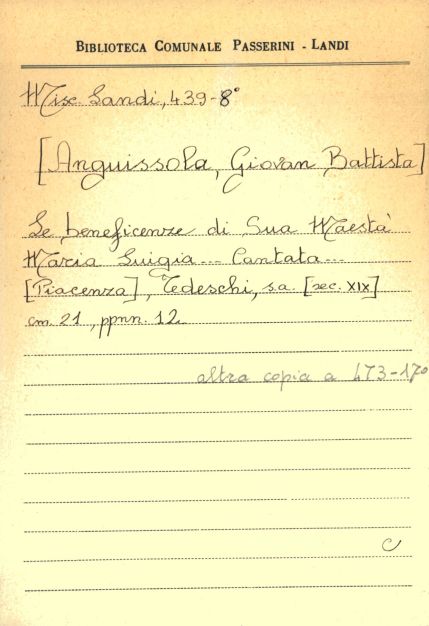 BIBLIOTECA COMUNALE PASSERINI - LANDI
Misc. Landi, 439-8°
[Anguissola, Giovan Battista]
Le beneficenze di Sua Maestà
Maria Luigia... Cantata...
[Piacenza], Tedeschi, s.a. [sec. XIX]
cm. 21, ppnn. 12
altra copia a 473-17°
C